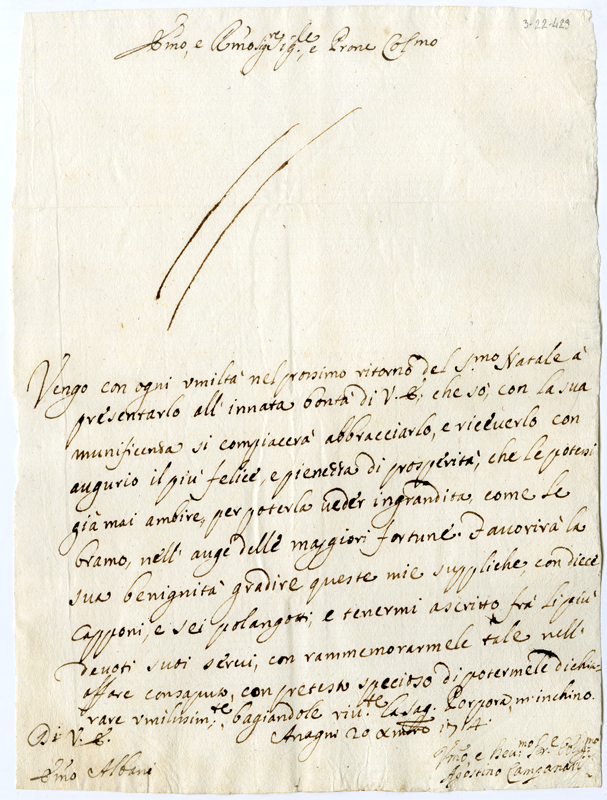 3-22-429
Emo, e Rmo Sigre Sigre, e Prone Colmo
Vengo con ogni vmiltà nel prossimo ritorno del S.mo Natale à
presentarlo all' innata bontà di V. E. che so, con la sua
munificenza si compiacerà abbracciarlo, e riceverlo con
augurio il più felice, e pienezza di prosperità, che le potessi
già mai ambire, per poterla veder ingrandita, come le
bramo, nell' auge delle maggiori fortune. Favorirà la
sua benignità gradire queste mie suppliche, con diece
Capponi, e sei polangotti, e tenermi ascritto frà li più
devoti suoi servi, con rammemorarmele tale nell'
affare consaputo, con pretesto specioso di potermele dichia-
rare vmilissim.te, bagiandole riu.te la sag. Porpora, m'inchino.
Di V. E. Anagni 20 Xmbro 1714
Emo Albani
Vmo, e Deu.mo Ser.e
Agostino Campanari